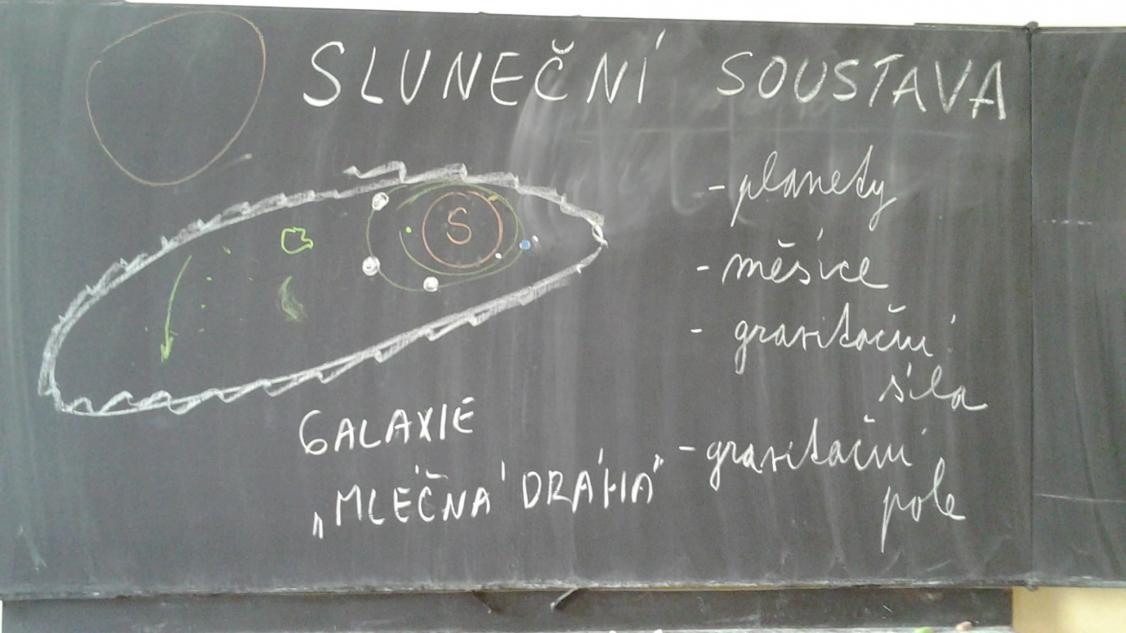 SLUNEČNÍ SOUSTAVA
S
- planety
- měsíce
- gravitační
síla
- gravitační
pole
GALAXIE
„MLÉČNÁ DRÁHA"